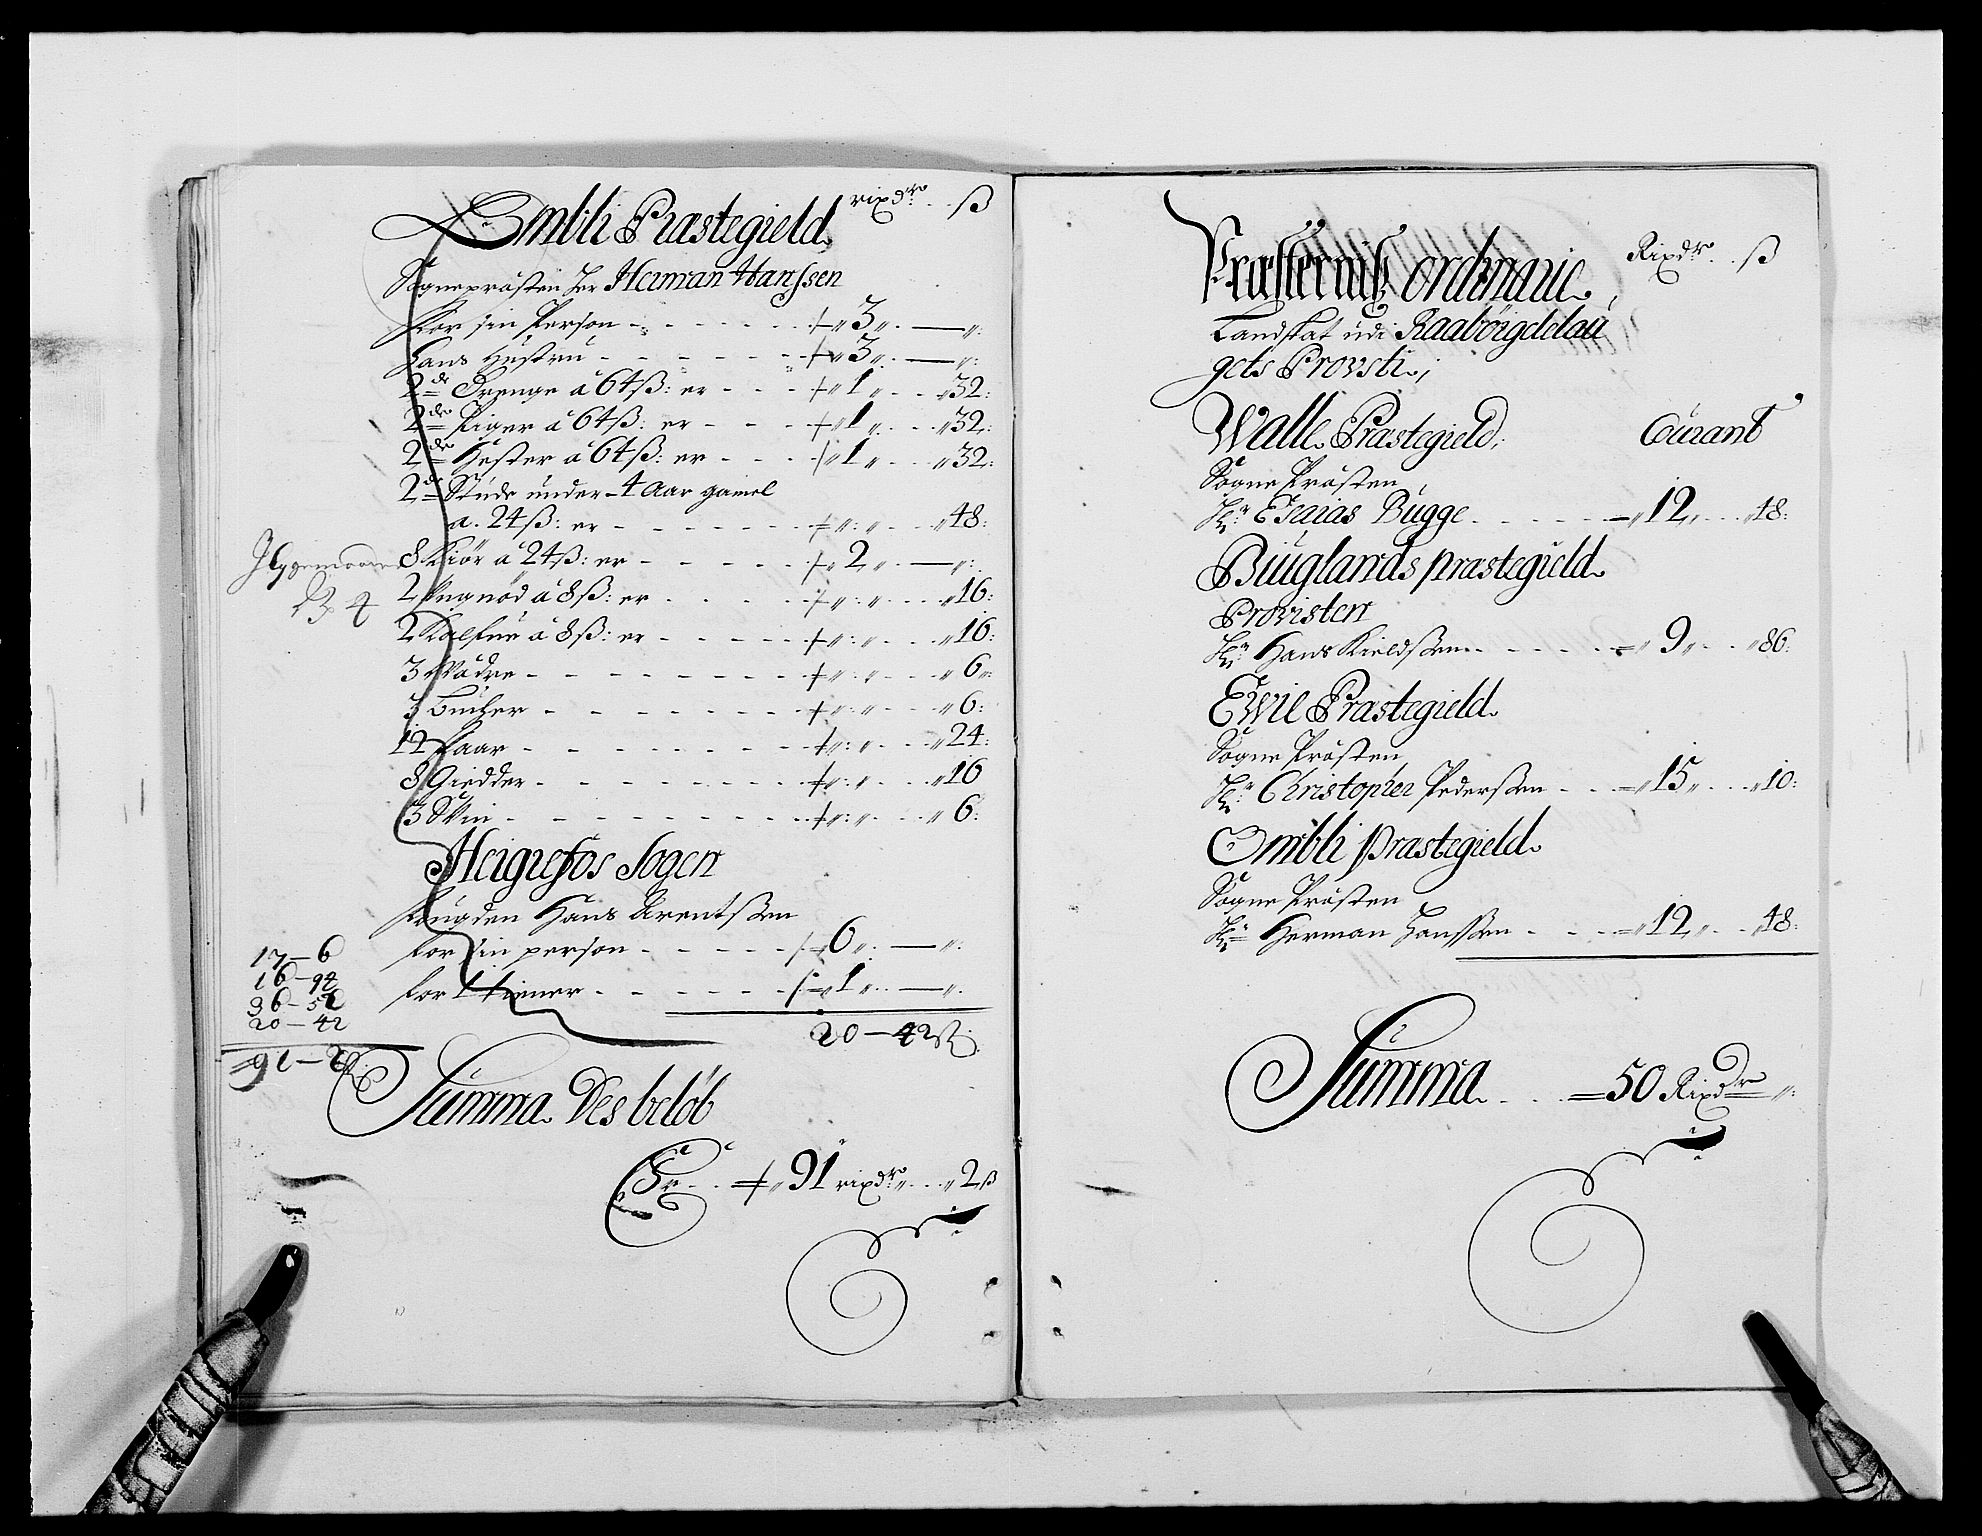 Ombli Præstegield. rixdr. ß
Sognepræsten Her Herman Hanssen
for sin Person - - - 3 „ — „:
hans Hustru - - - 3 „ — „:
2de Drenge a 64ß: er - - - 1 „ „32:
2de Piger a 64ß: er - - - 1 „ „32:
2de Hester a 64ß: er - - - 1 „ „32:
2de Stude under 4 Aar gamel
a. 24ß: er - - - „: „ „48:
8 Kiör a 24ß: er - - - 2 „ — „:
2 Ungnöd a 8ß: er - - - „: „ „16:
2 Kalfue a 8ß: er - - - „: „ „16:
3 Vædre - - - „: „ „6:
3 Bucher - - - „: „ „6:
12 Faar - - - „: „ „24:
8 Giedder - - - „: „ „16
3 Sviin - - - „: „ „6:
Heigrefos Sogen
fougden Hans Arentsßen
for sin person - - - 6 „: — „:
for 1 tiener - - - 1 „: — „:
20 — 42ß:
17 — 6
16 — 94
36 — 52
20 — 42
91 — 2ß:
Summa Des beløb
Er - - 91 rixdr „ „2ß
Præsternis ordinarie Rixdr. ß
Landskat udi Raaböigdelau
gets Provsti;
Walle Præstegield; Courant
Sogne Præsten
Hr: Esaias Bugge - - - 12 „ „48:
Biuglands præstegield.
Provisten
Hr: Hans Kieldsßen - - - 9 „ „86:
Ewie Præstegield.
Sogne Præsten
Hr: Christopher Pedersßen - - - 15 „ „10:
Ombli præstegield.
Sogne Præsten
Hr: Herman Hanssen - - - 12 „ „48:
Summa - - - 50 Rixdr „: